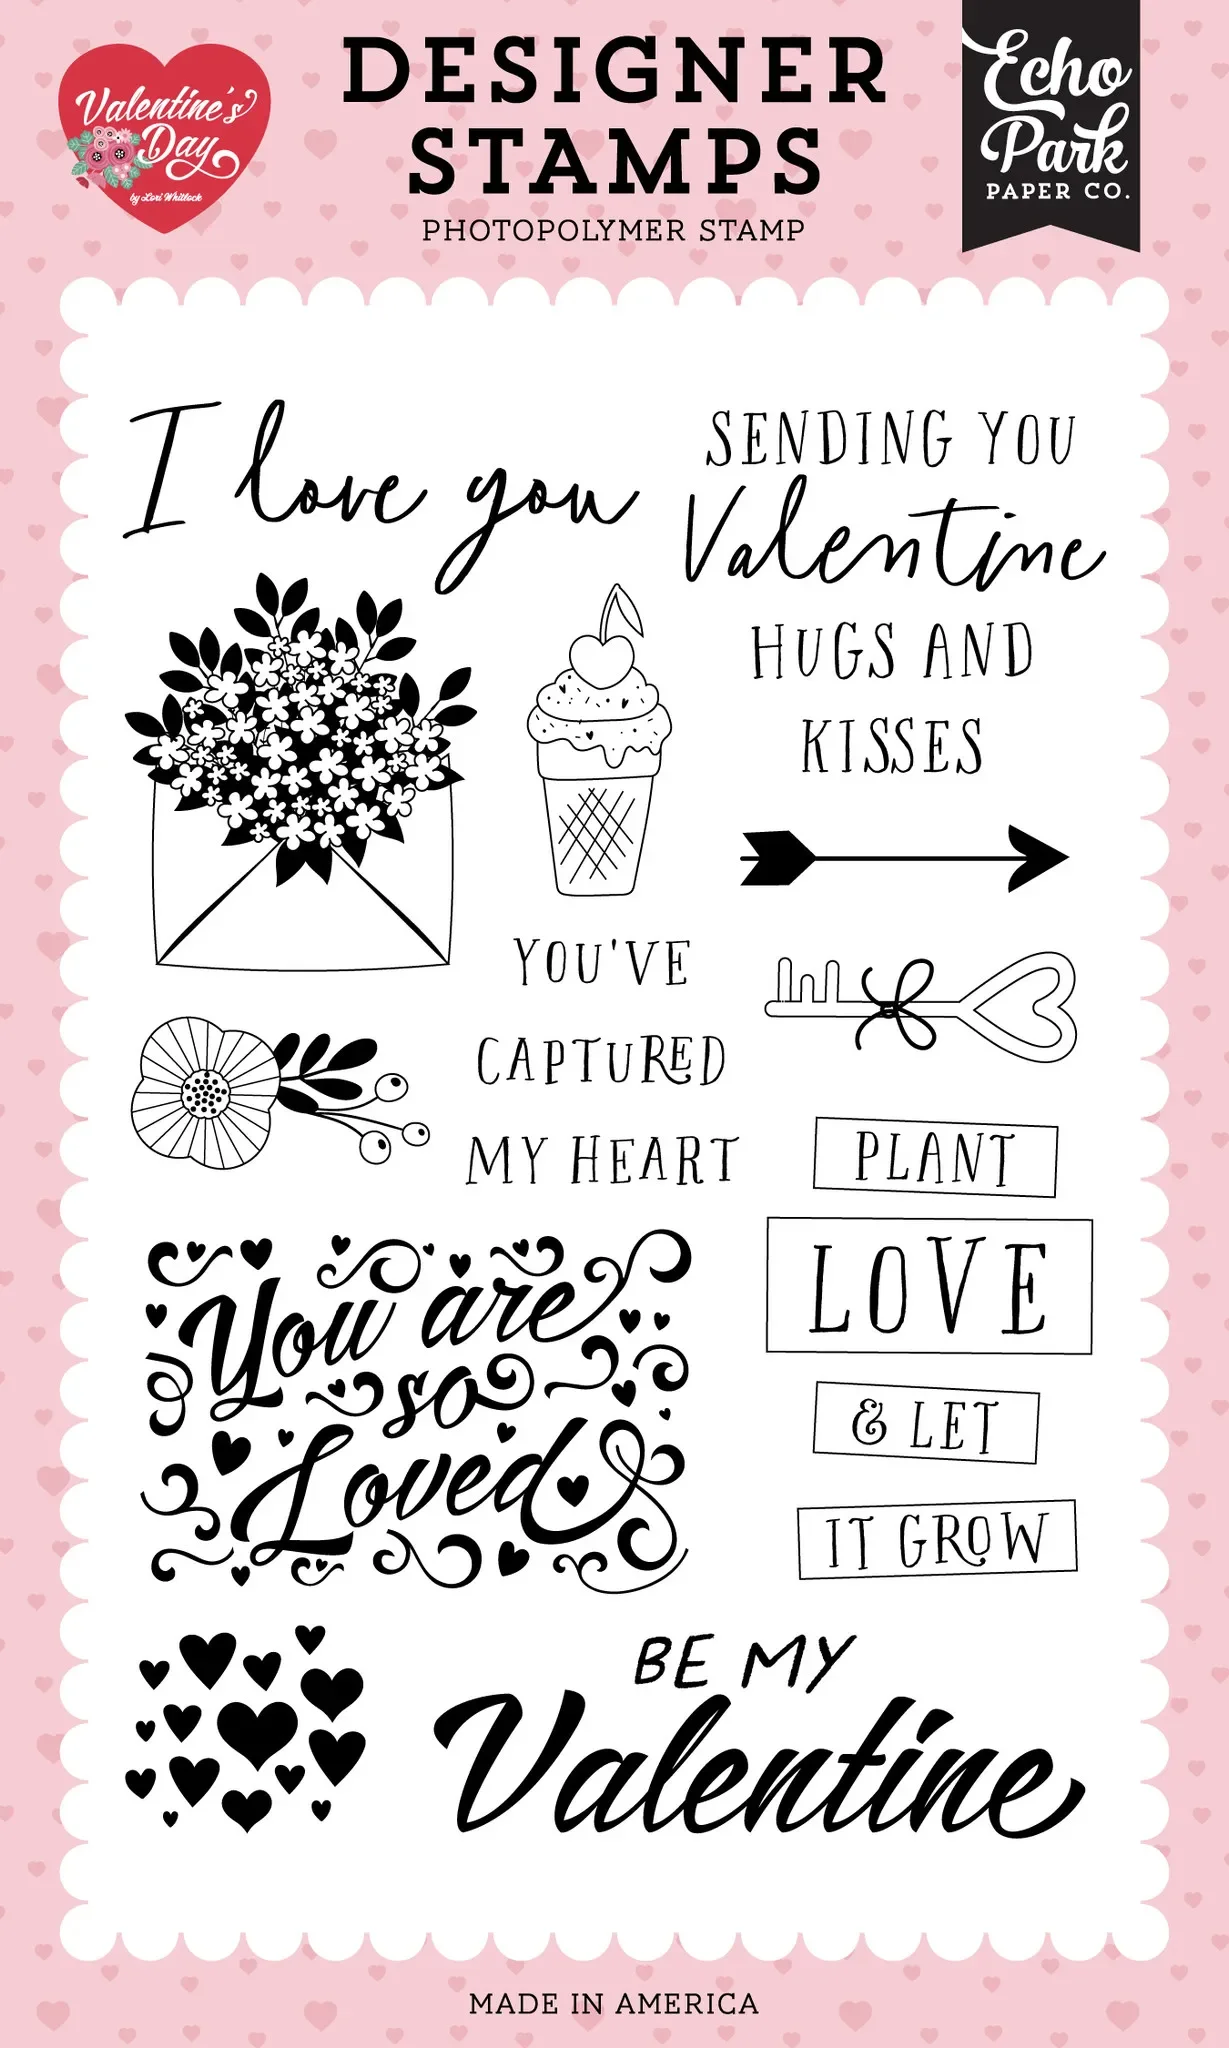 Valentine's
Day
by Lori Whitlock
DESIGNER
STAMPS
PHOTOPOLYMER STAMP
Echo
Park
PAPER CO.
I love you
SENDING YOU
Valentine
HUGS AND
KISSES
YOU'VE
CAPTURED
MY HEART
PLANT
LOVE
& LET
IT GROW
You are
so
Loved
BE MY
Valentine
MADE IN AMERICA